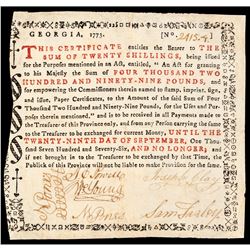 GEORGIA, 1773. [No.
THIS CERTIFICATE entitles the Bearer to THE
SUM OF TWENTY SHILLINGS, being issued
for the Purposes mentioned in an Act, entitled, "An ACT for granting
to his Majesty the Sum of FOUR THOUSAND TWO
HUNDRED AND NINETY-NINE POUNDS, and
for empowering the Commissioners therein named to stamp, imprint, sign,
and issue, Paper Certificates, to the Amount of the said Sum of Four
Thousand Two Hundred and Ninety-Nine Pounds, for the Uses and Pur-
poses therein mentioned," and is to be received in all Payments made to
the Treasurer of this Province only, and from any Person carrying the same
to the Treasurer to be exchanged for other current Money, UNTIL THE
TWENTY-NINTH DAY OF SEPTEMBER, One Thou-
sand Seven Hundred and Seventy-Six, AND NO LONGER; and
if not brought in to the Treasurer to be exchanged by that Time, the
Publick of this Province will be liable to no Demand whatever for the same.
W Young